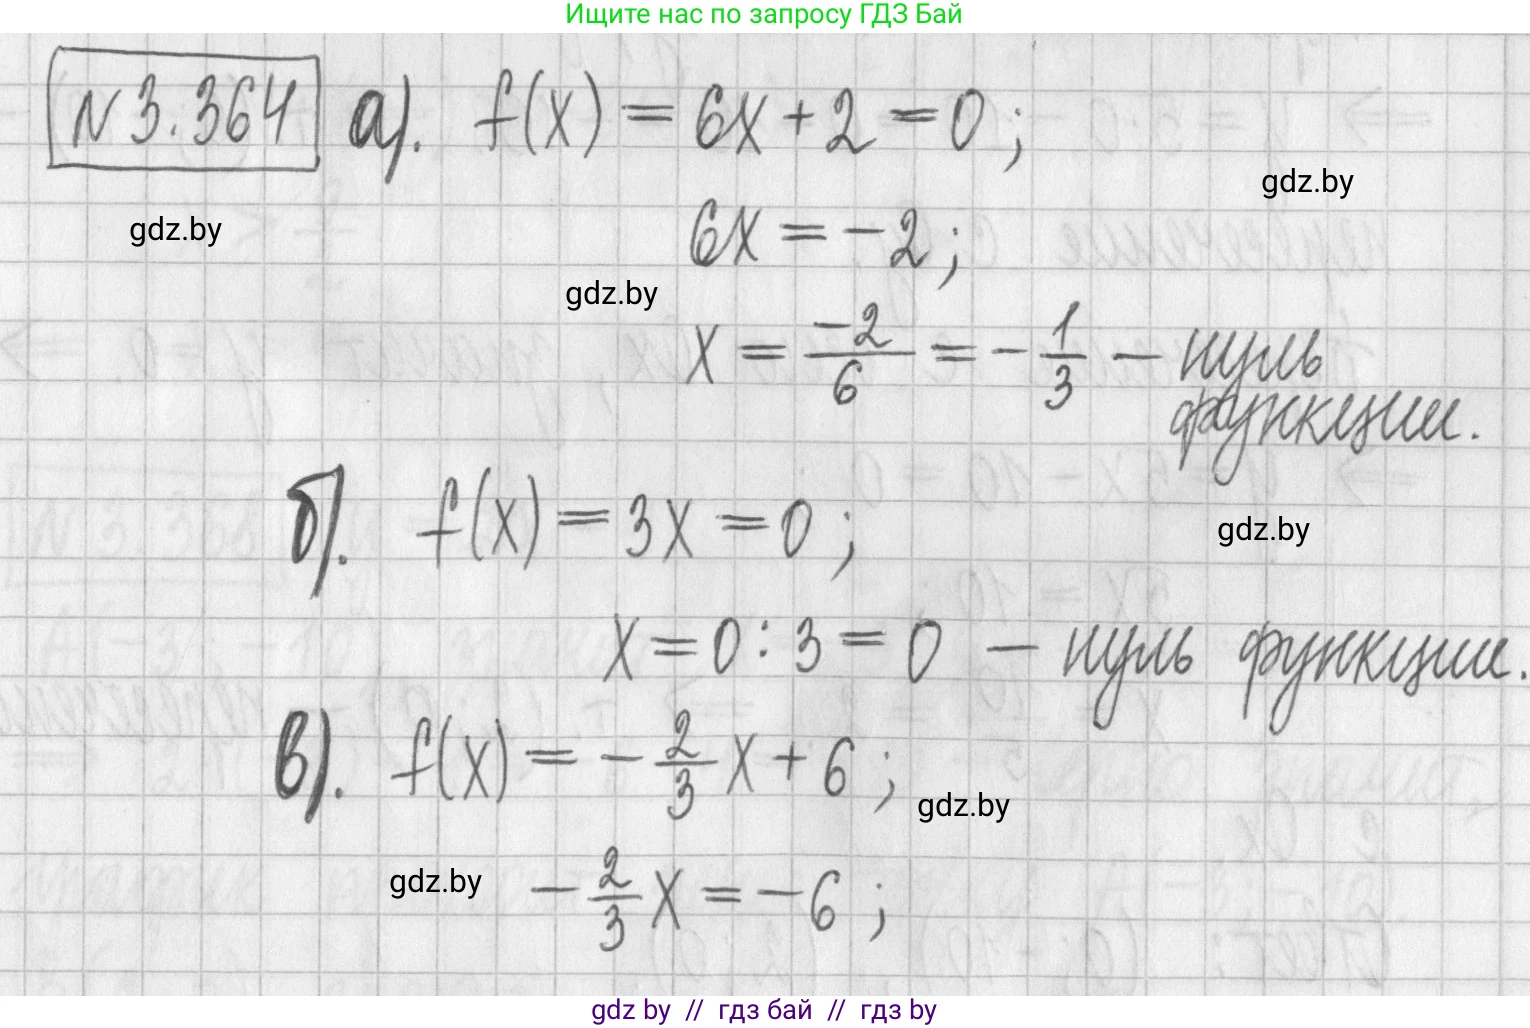 Ищите нас по запросу ГДЗ Бай
N 3.364 а). f(x) = 6x + 2 = 0;
gdz.by
gdz.by
6x = -2;
gdz.by
x = -2/6 = -1/3 — нуль
функции.
б). f(x) = 3x = 0;
gdz.by
x = 0 : 3 = 0 — нуль функции.
в). f(x) = -2/3 x + 6;
gdz.by
gdz.by
-2/3 x = -6;
gdz by // гдз бай // гдз by